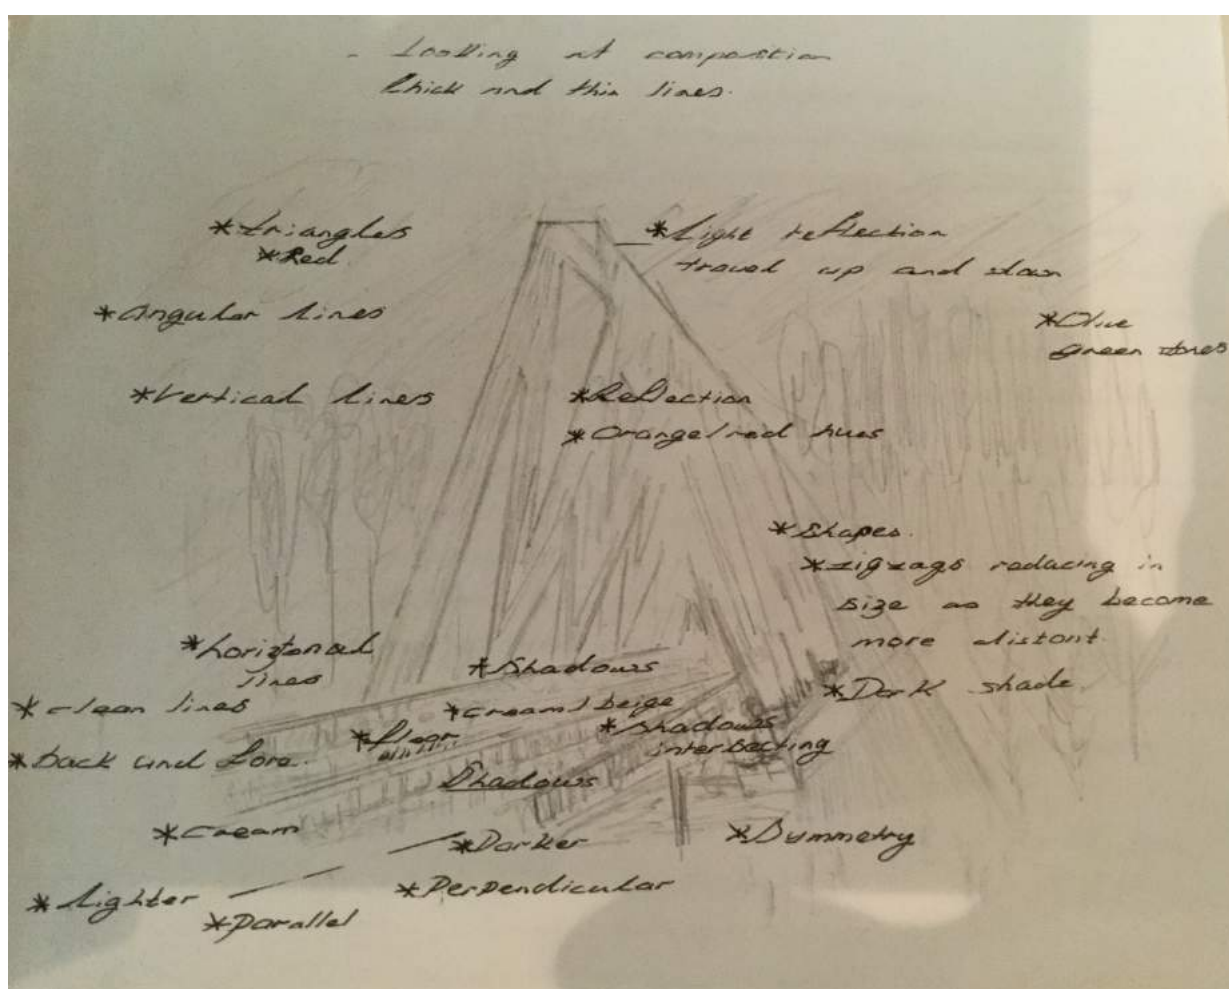 - Looking at compostion
thick and thin lines.
*triangles
*Red
*Light reflection
travel up and down
*Angular lines
*Olive
green tones
*Vertical lines
*Reflection
*Orange/red hues
*Shapes.
*zigzags reducing in
size as they become
more distant.
*horizonal
lines
*Shadows
*Dark shade.
*clean lines
*cream/beige
*floor
*Shadows
intersecting
*back and fore.
Shadows
*cream
*Darker
*Symmetry
*Lighter
*Perpendicular
*Parallel